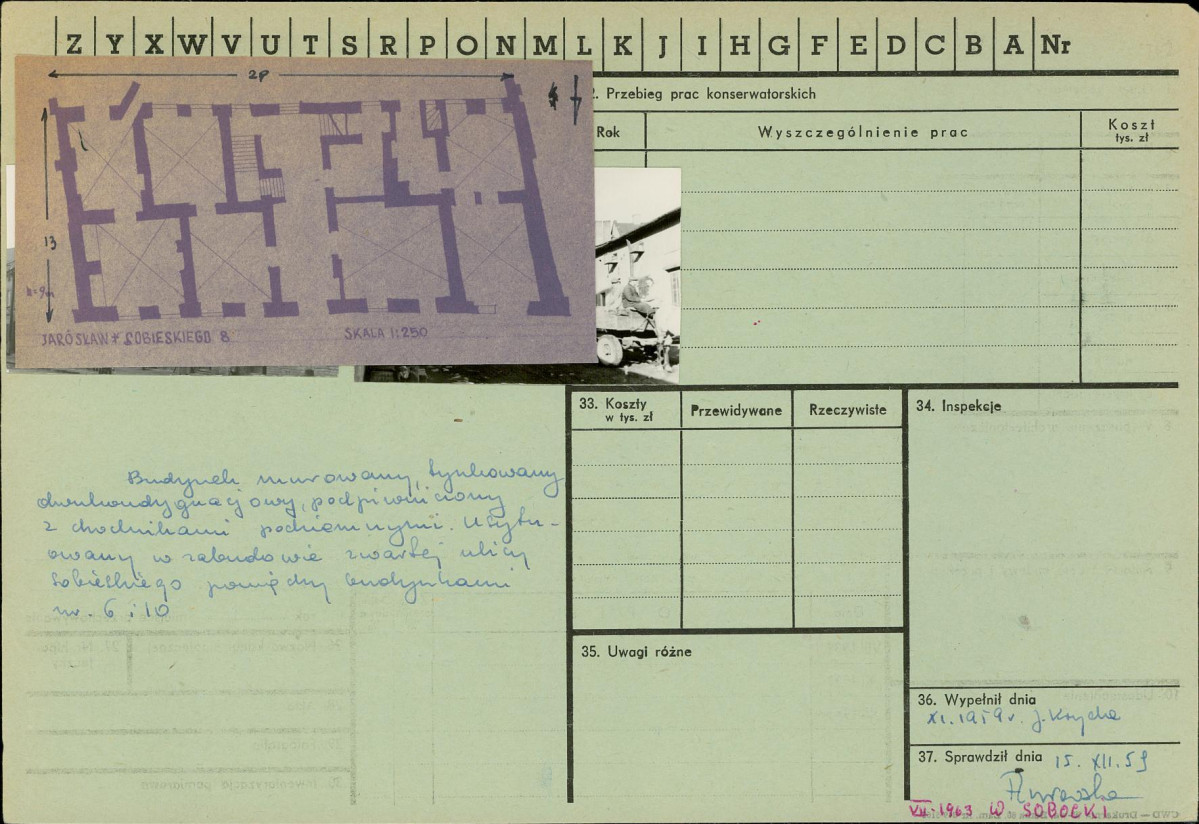 Z Y X W V U T S R P O N M L K J I H G F E D C B A Nr
2. Przebieg prac konserwatorskich
Rok
Wyszczególnienie prac
Koszt
tys. zł
13
h=9m
JAROSŁAW SOBIESKIEGO 8
SKALA 1:250
33. Koszty
w tys. zł
Przewidywane
Rzeczywiste
34. Inspekcje
Budynek murowany, tynkowany
dwukondygnacjowy, podpiwniczony
z chodnikami podziemnymi. Usytu-
owany w zabudowie zwartej ulicy
Sobieskiego pomiędzy budynkami
nr. 6 i 10
35. Uwagi różne
36. Wypełnił dnia
XI. 1959 r. J. Krycha
37. Sprawdził dnia 15. XII. 59
VII-1963 W SOBOCKI